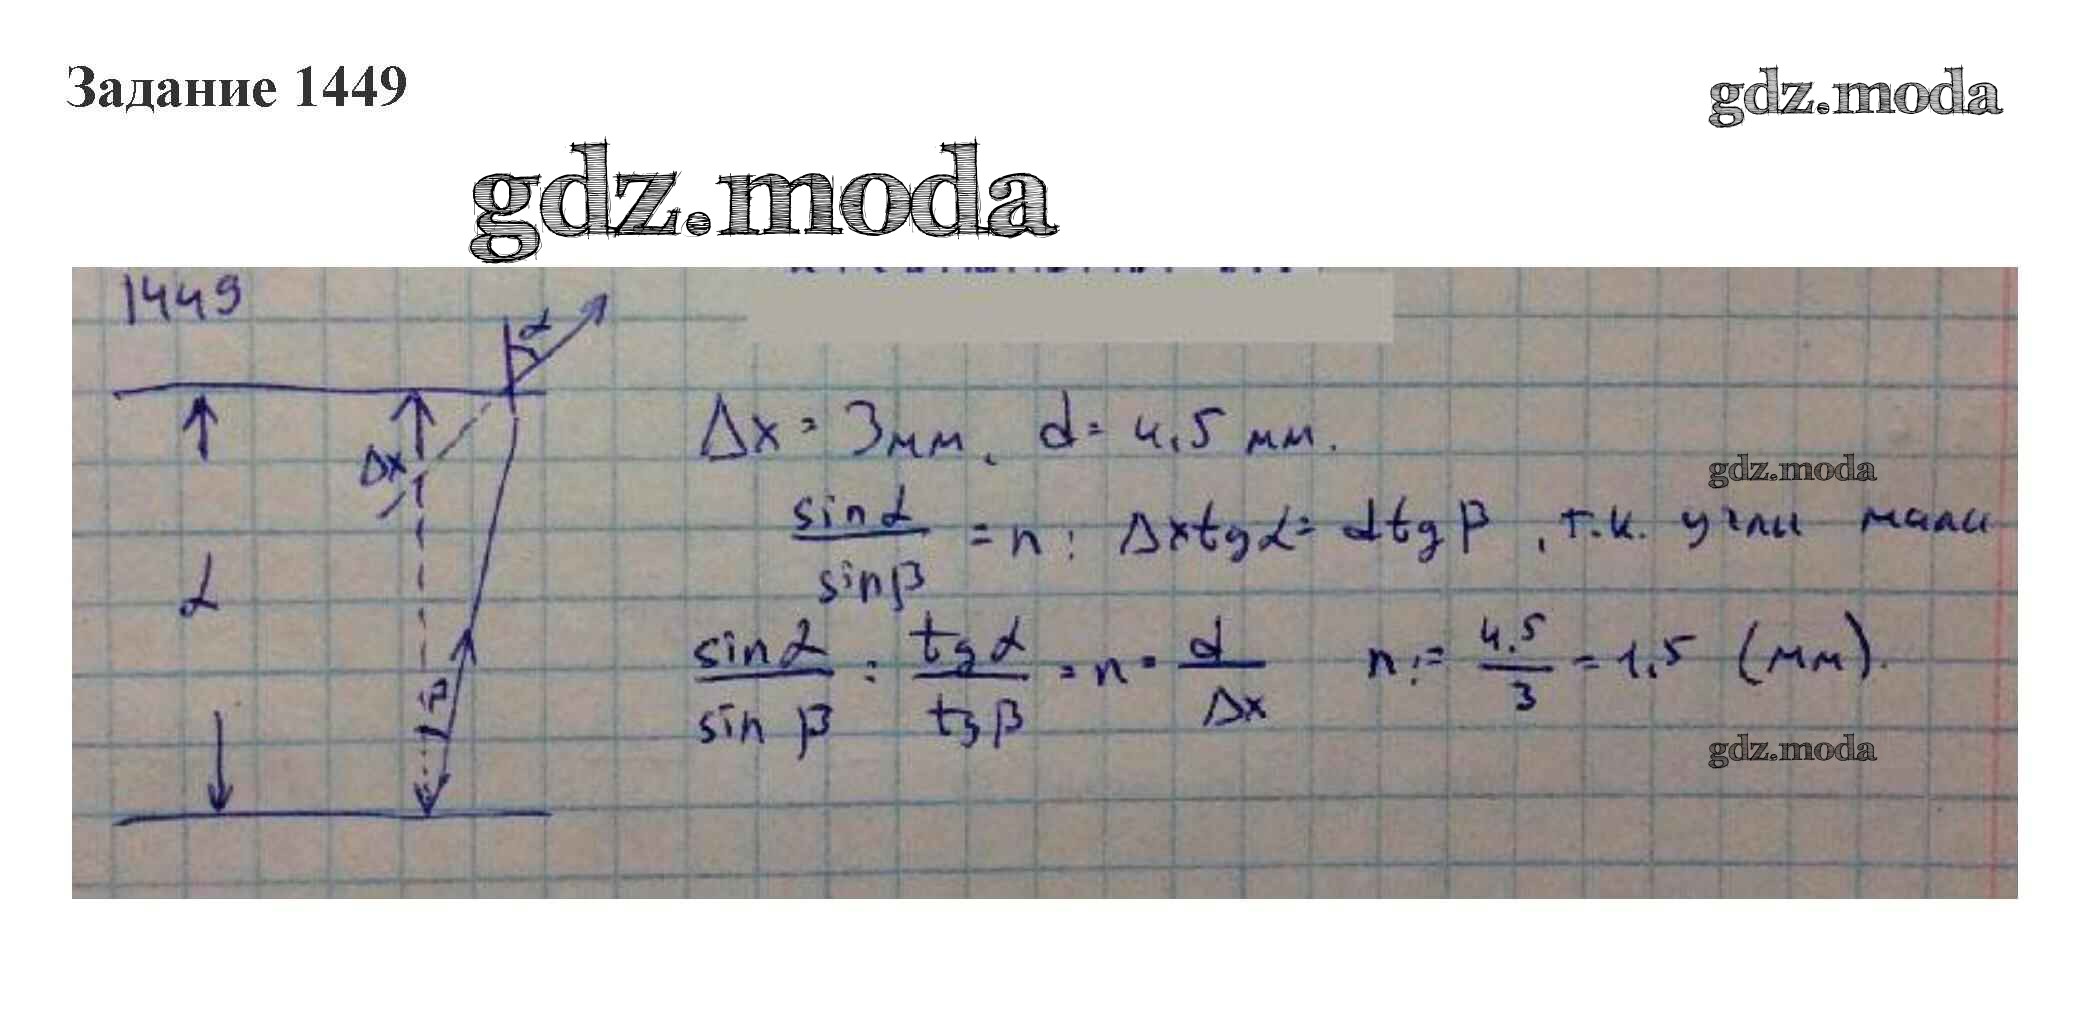 Задание 1449
gdz.moda
gdz.moda
1449
α
Δx = 3 мм, d = 4,5 мм.
Δx
gdz.moda
sin α / sin β = n; Δx tg α = d tg β, т.к. углы малы
d
sin α / sin β = tg α / tg β = n = d / Δx n = 4,5 / 3 = 1,5 (мм).
β
gdz.moda